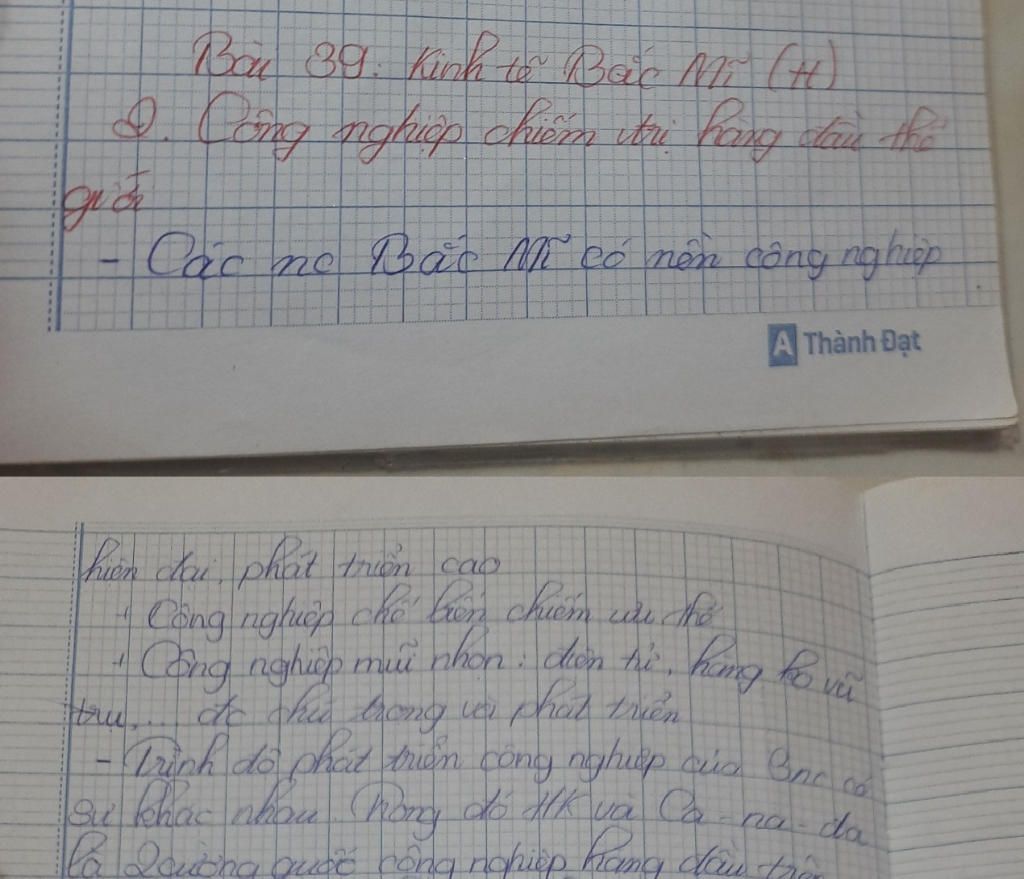 Bài 39: Kinh tế Bắc Mĩ (tt)
2. Công nghiệp chiếm vị trí hàng đầu thế
giới
- Các nc Bắc Mĩ có nền công nghiệp
A Thành Đạt
hiện đại, phát triển cao
+ Công nghiệp chế biến chiếm ưu thế
+ Công nghiệp mũi nhọn: điện tử, hàng ko vũ
trụ,... đc chú trọng và phát triển
- Trình độ phát triển công nghiệp của 3nc có
sự khác nhau. Trong đó HK và Ca-na-da
là 2 cường quốc công nghiệp hàng đầu trên